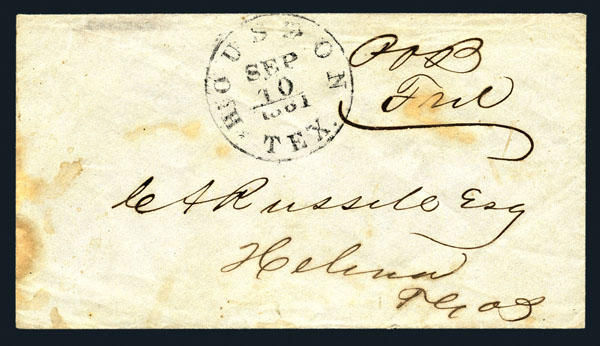 HOUSTON
SEP
10
1861
TEX.
POB
Free
C A Russell Esq
Helena
Texas